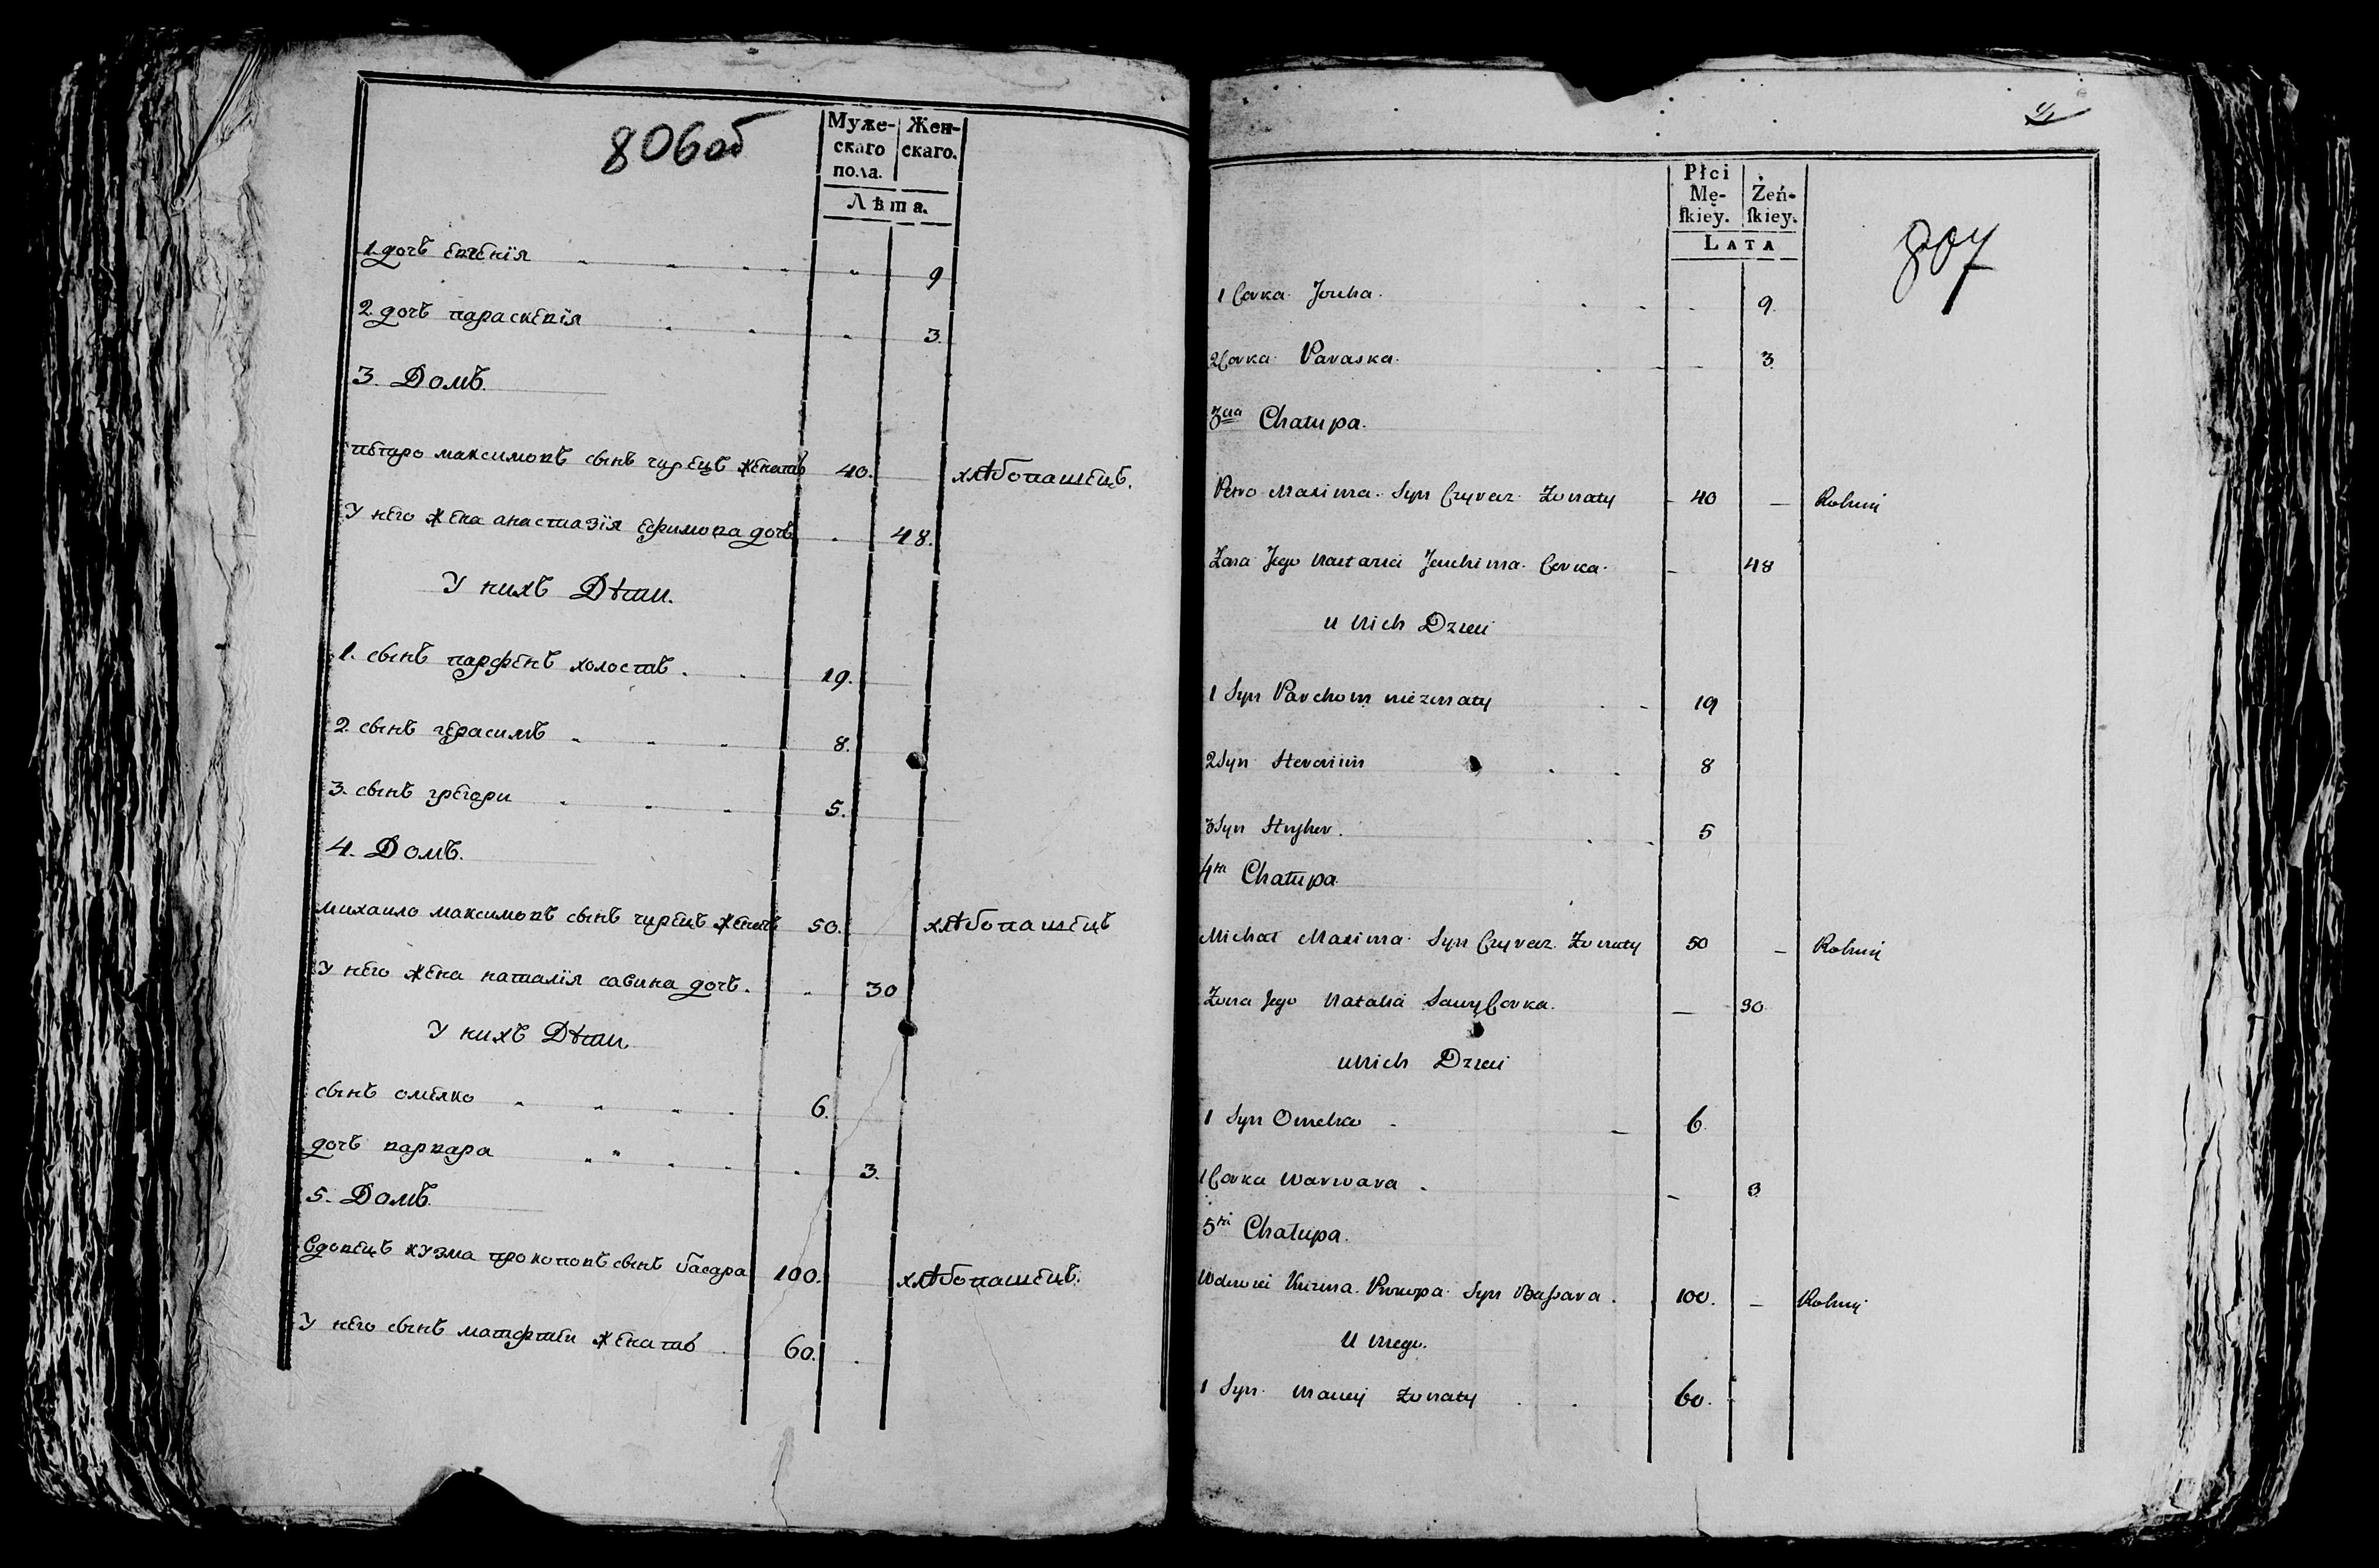 806об
Муже- Жен-
скаго скаго.
пола.
Лѣта.
1. дочь евгенїя 9
2. дочь параскевїя 3.
3. Домъ.
петро максимовъ сынъ чирецъ женатъ 40. хлѣбопашецъ.
У него жена анастазїя ефимова дочь 48.
У нихъ Дѣти.
1. сынъ парфенъ холостъ 19.
2. сынъ герасимъ 8.
3. сынъ грегори 5.
4. Домъ.
михаило максимовъ сынъ чирецъ женатъ 50. хлѣбопашецъ
У него жена наталїя савина дочь. 30
У нихъ Дѣти
сынъ омелко 6.
дочь варвара 3.
5. Домъ.
Вдовецъ кузма прокоповъ сынъ басара 100. хлѣбопашецъ.
У него сынъ матфтеи женатъ 60.
4
807
Płci
Mę- Żeń-
ſkiey. ſkiey.
LATA
1 Corka Jouha. 9.
2 Corka Paraska. 3
3cia Chałupa.
Petro Maxima Syn Czyrez Zonaty 40 — Rolnik
Zona Jego Nastazia Jeuchima Corka. 48
u Nich Dzieci
1 Syn Parchom niezonaty 19
2 Syn Harasim 8
3 Syn Hryhor. 5
4ta Chałupa
Michał Maxima Syn Czyrez Zonaty 50 — Rolnik
Zona Jego Natalia Sawy Corka. — 30
u Nich Dzieci
1 Syn Omelko 6.
1 Corka Warwara 3
5ta Chałupa.
Wdowiec Kuzma Prokopa Syn Baſsara. 100. — Rolnik
U niego.
1 Syn Maciej żonaty 60.